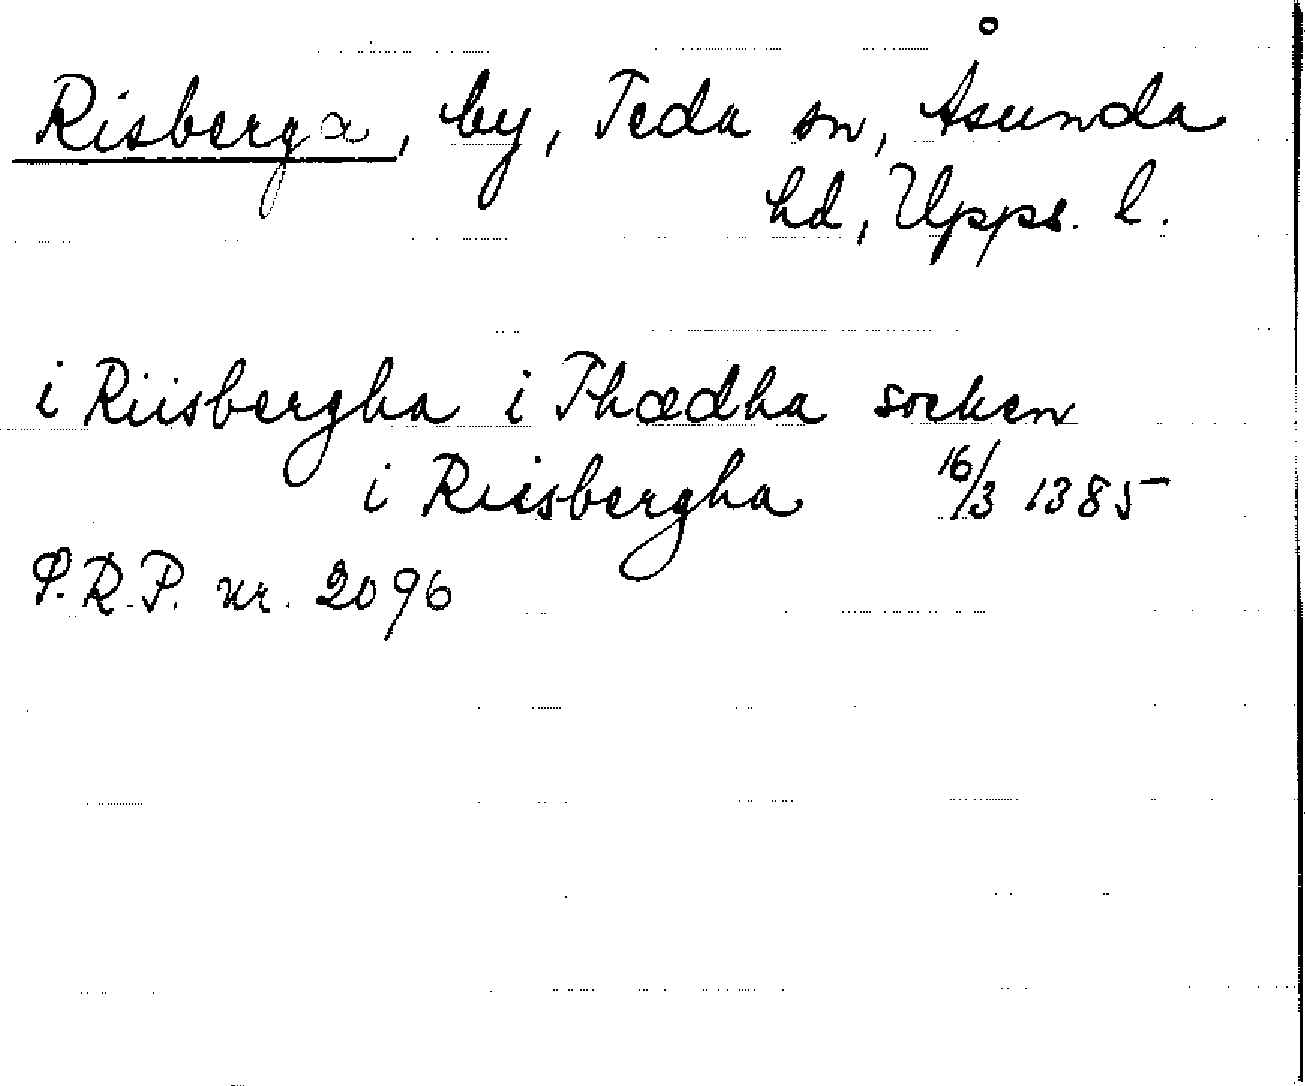 Risberga, by, Teda sn, Åsunda
hd, Upps. l.
i Riisbergha i Thædha socken
i Riisbergha 16/3 1385
P.R.P. nr. 2096